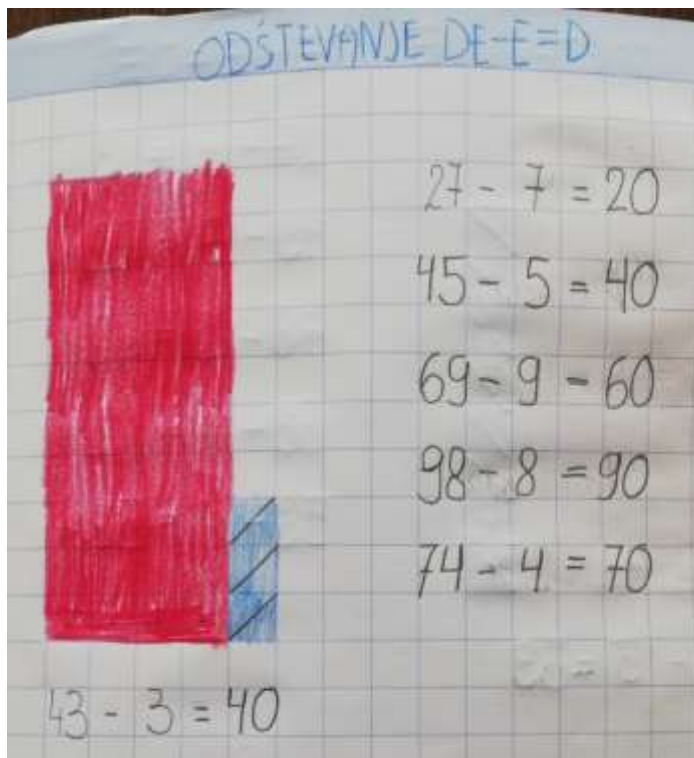 ODŠTEVANJE DE-E=D
27 - 7 = 20
45 - 5 = 40
69 - 9 - 60
98 - 8 = 90
74 - 4 = 70
43 - 3 = 40